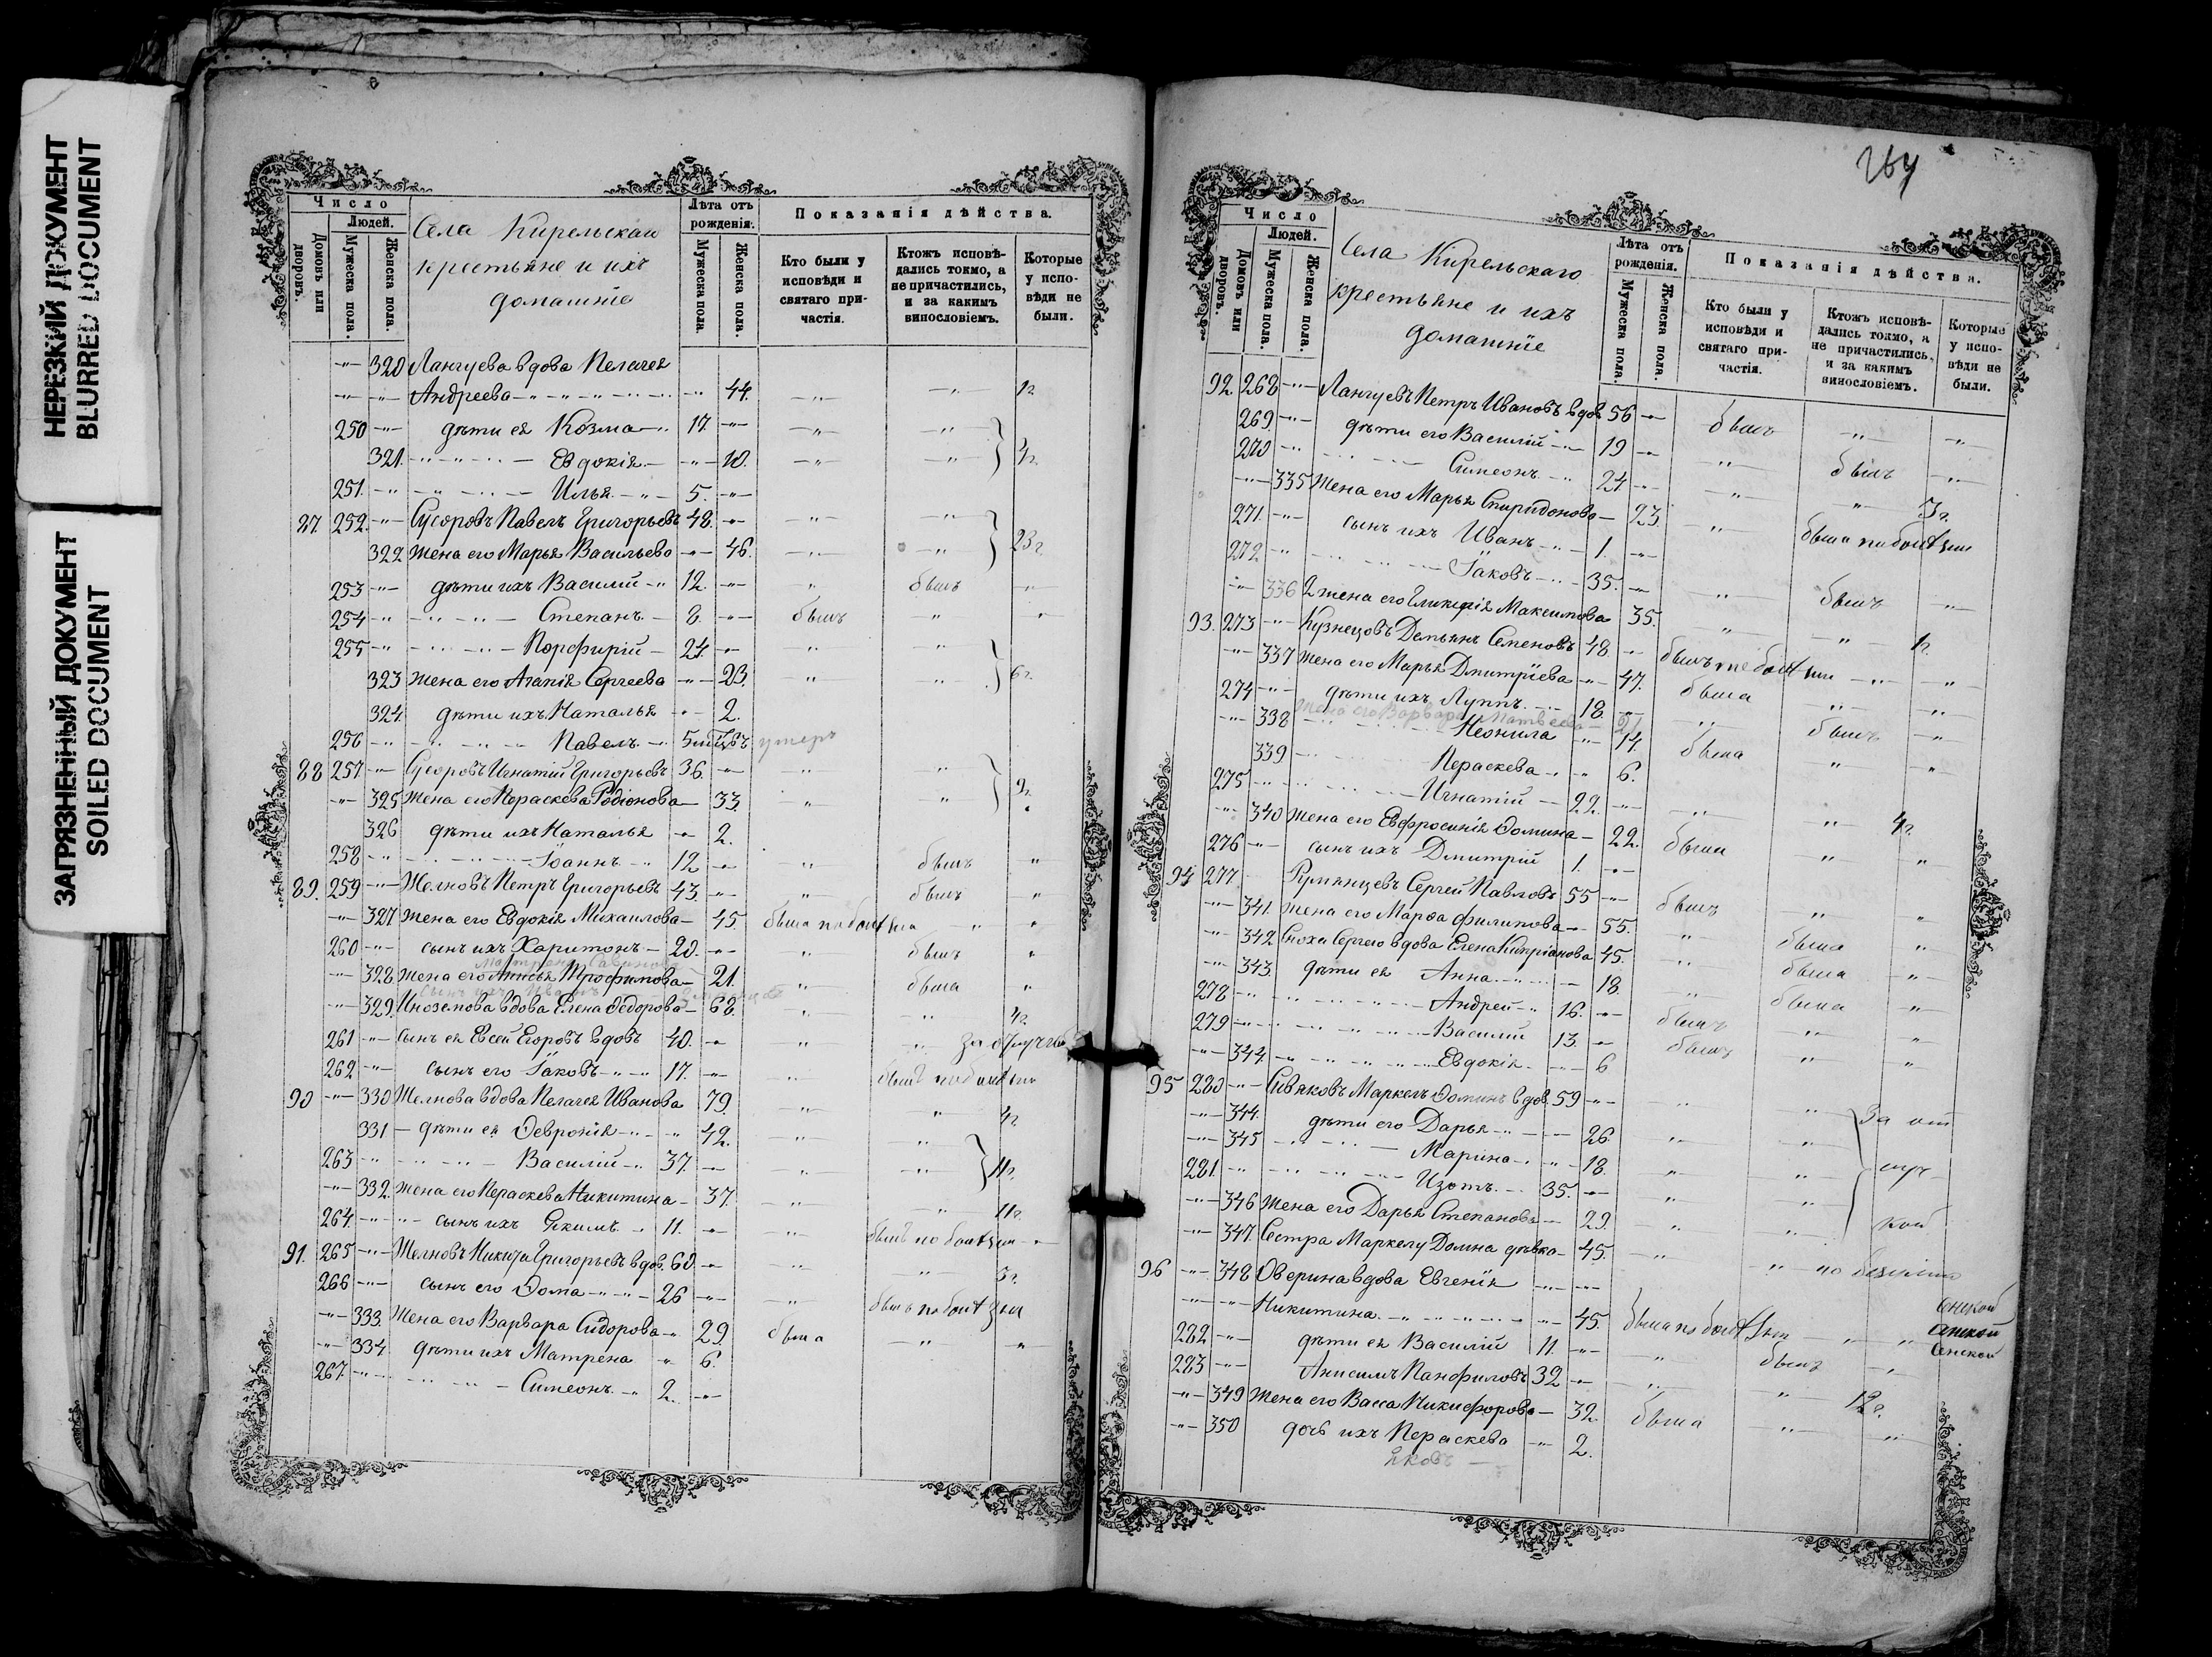 НЕРЕЗКИЙ ДОКУМЕНТ
BLURRED DOCUMENT
ЗАГРЯЗНЕННЫЙ ДОКУМЕНТ
SOILED DOCUMENT
Число
Людей.
Домовъ или дворовъ.
Мужеска пола.
Женска пола.
Села Кирельскаи
крестьяне и ихъ
домашніе
Лѣта отъ рожденія.
Мужеска пола.
Женска пола.
Показанія дѣйства.
Кто были у исповѣди и святаго причастія.
Ктожъ исповѣдались токмо, а не причастились, и за какимъ винословіемъ.
Которые у исповѣди не были.
320 Лангуева вдова Пелагея
Андреева 44. 1 г.
250 дѣти ея Козма 17.
321. Евдокія 10. 4 г.
251. Илья 5.
87. 252. Сусоровъ Павелъ Григорьевъ 48.
322 жена его Марья Васильева 46. 23 г.
253 дѣти ихъ Василій 12. былъ
254 Степанъ 8. былъ
255 Порфирій 24.
323 жена его Агапія Сергеева 23. 6 г.
324. дѣти ихъ Наталья 2.
256 Павелъ 5 умеръ
88 257 Сусоровъ Игнатій Григорьевъ 36.
325 жена его Параскева Родіонова 33. 9 г.
326 дѣти ихъ Наталья 2.
258 Іоаннъ 12 былъ
89. 259 Желновъ Петръ Григорьевъ 43. былъ
327 жена его Евдокія Михаилова 45. была
260 сынъ ихъ Харитонъ 20. былъ
328. жена его Анисья Трофимова 21. была
329. Иноземова вдова Елена Ѳедорова 68. 4 г.
261 сынъ ея Евсей Егоровъ вдовъ 40.
262 сынъ его Іаковъ 17. былъ
90 330 Желнова вдова Пелагея Иванова 79. 4 г.
331 дѣти ея Ѳевронія 42.
263 Василій 37. 11 г.
332. жена его Параскева Никитина 37. 11 г.
264. сынъ ихъ Якимъ 11. былъ по болѣзни
91. 265 Желновъ Никита Григорьевъ вдов. 60. 3 г.
266 сынъ его Ѳома 26 былъ по болѣзни
333. жена его Варвара Сидорова 29. была
334 дѣти ихъ Матрена 6.
267. Симеонъ 2.
264
Число
Людей.
Домовъ или дворовъ.
Мужеска пола.
Женска пола.
Села Кирельскаго
крестьяне и ихъ
домашніе
Лѣта отъ рожденія.
Мужеска пола.
Женска пола.
Показанія дѣйства.
Кто были у исповѣди и святаго причастія.
Ктожъ исповѣдались токмо, а не причастились, и за какимъ винословіемъ.
Которые у исповѣди не были.
92. 268 Лангуевъ Петръ Ивановъ вдов 56 былъ
269. дѣти его Василій 19 былъ
270 Симеонъ 24 3 г.
335 жена его Марья Спиридонова 23. была по болѣзни
271. сынъ ихъ Иванъ 1.
272 Іаковъ 35. былъ
336 2 жена его Гликерія Максимова 35. 1 г.
93. 273 Кузнецовъ Демьянъ Семеновъ 48. былъ
337 жена его Марья Дмитріева 47. была
274 дѣти ихъ Луппъ 18. былъ
жена его Варвара Матвеева
338 Неонила 14. была
339 Параскева 6.
275 Игнатій 22. 4 г.
340 жена его Евфросинія Ѳомина 22. была
276 сынъ ихъ Дмитрій 1.
94 277. Румянцевъ Сергей Павловъ 55 былъ
341. жена его Марѳа Филипова 55. была
342 Сноха Сергею вдова Елена Кипріанова 45. была
343. дѣти ея Анна 18. была
278 Андрей 16. былъ
279 Василій 13. былъ
344. Евдокія 6
95 280 Сивяковъ Маркелъ Ѳоминъ вдов. 59
344. дѣти его Дарья 26.
345 Марина 18.
281. Изотъ 35.
За отлучкой
346 жена его Дарья Степанова 29.
347. Сестра Маркелу Домна дѣвка 45.
96 348 Оверина вдова Евгенія
Никитина 45. была по болѣзни
282 дѣти ея Василій 11. былъ
283 Анисимъ Панфиловъ 32 12 г.
349 жена его Васса Никифорова 32. была
350 дочь ихъ Параскева 2.
Яковъ